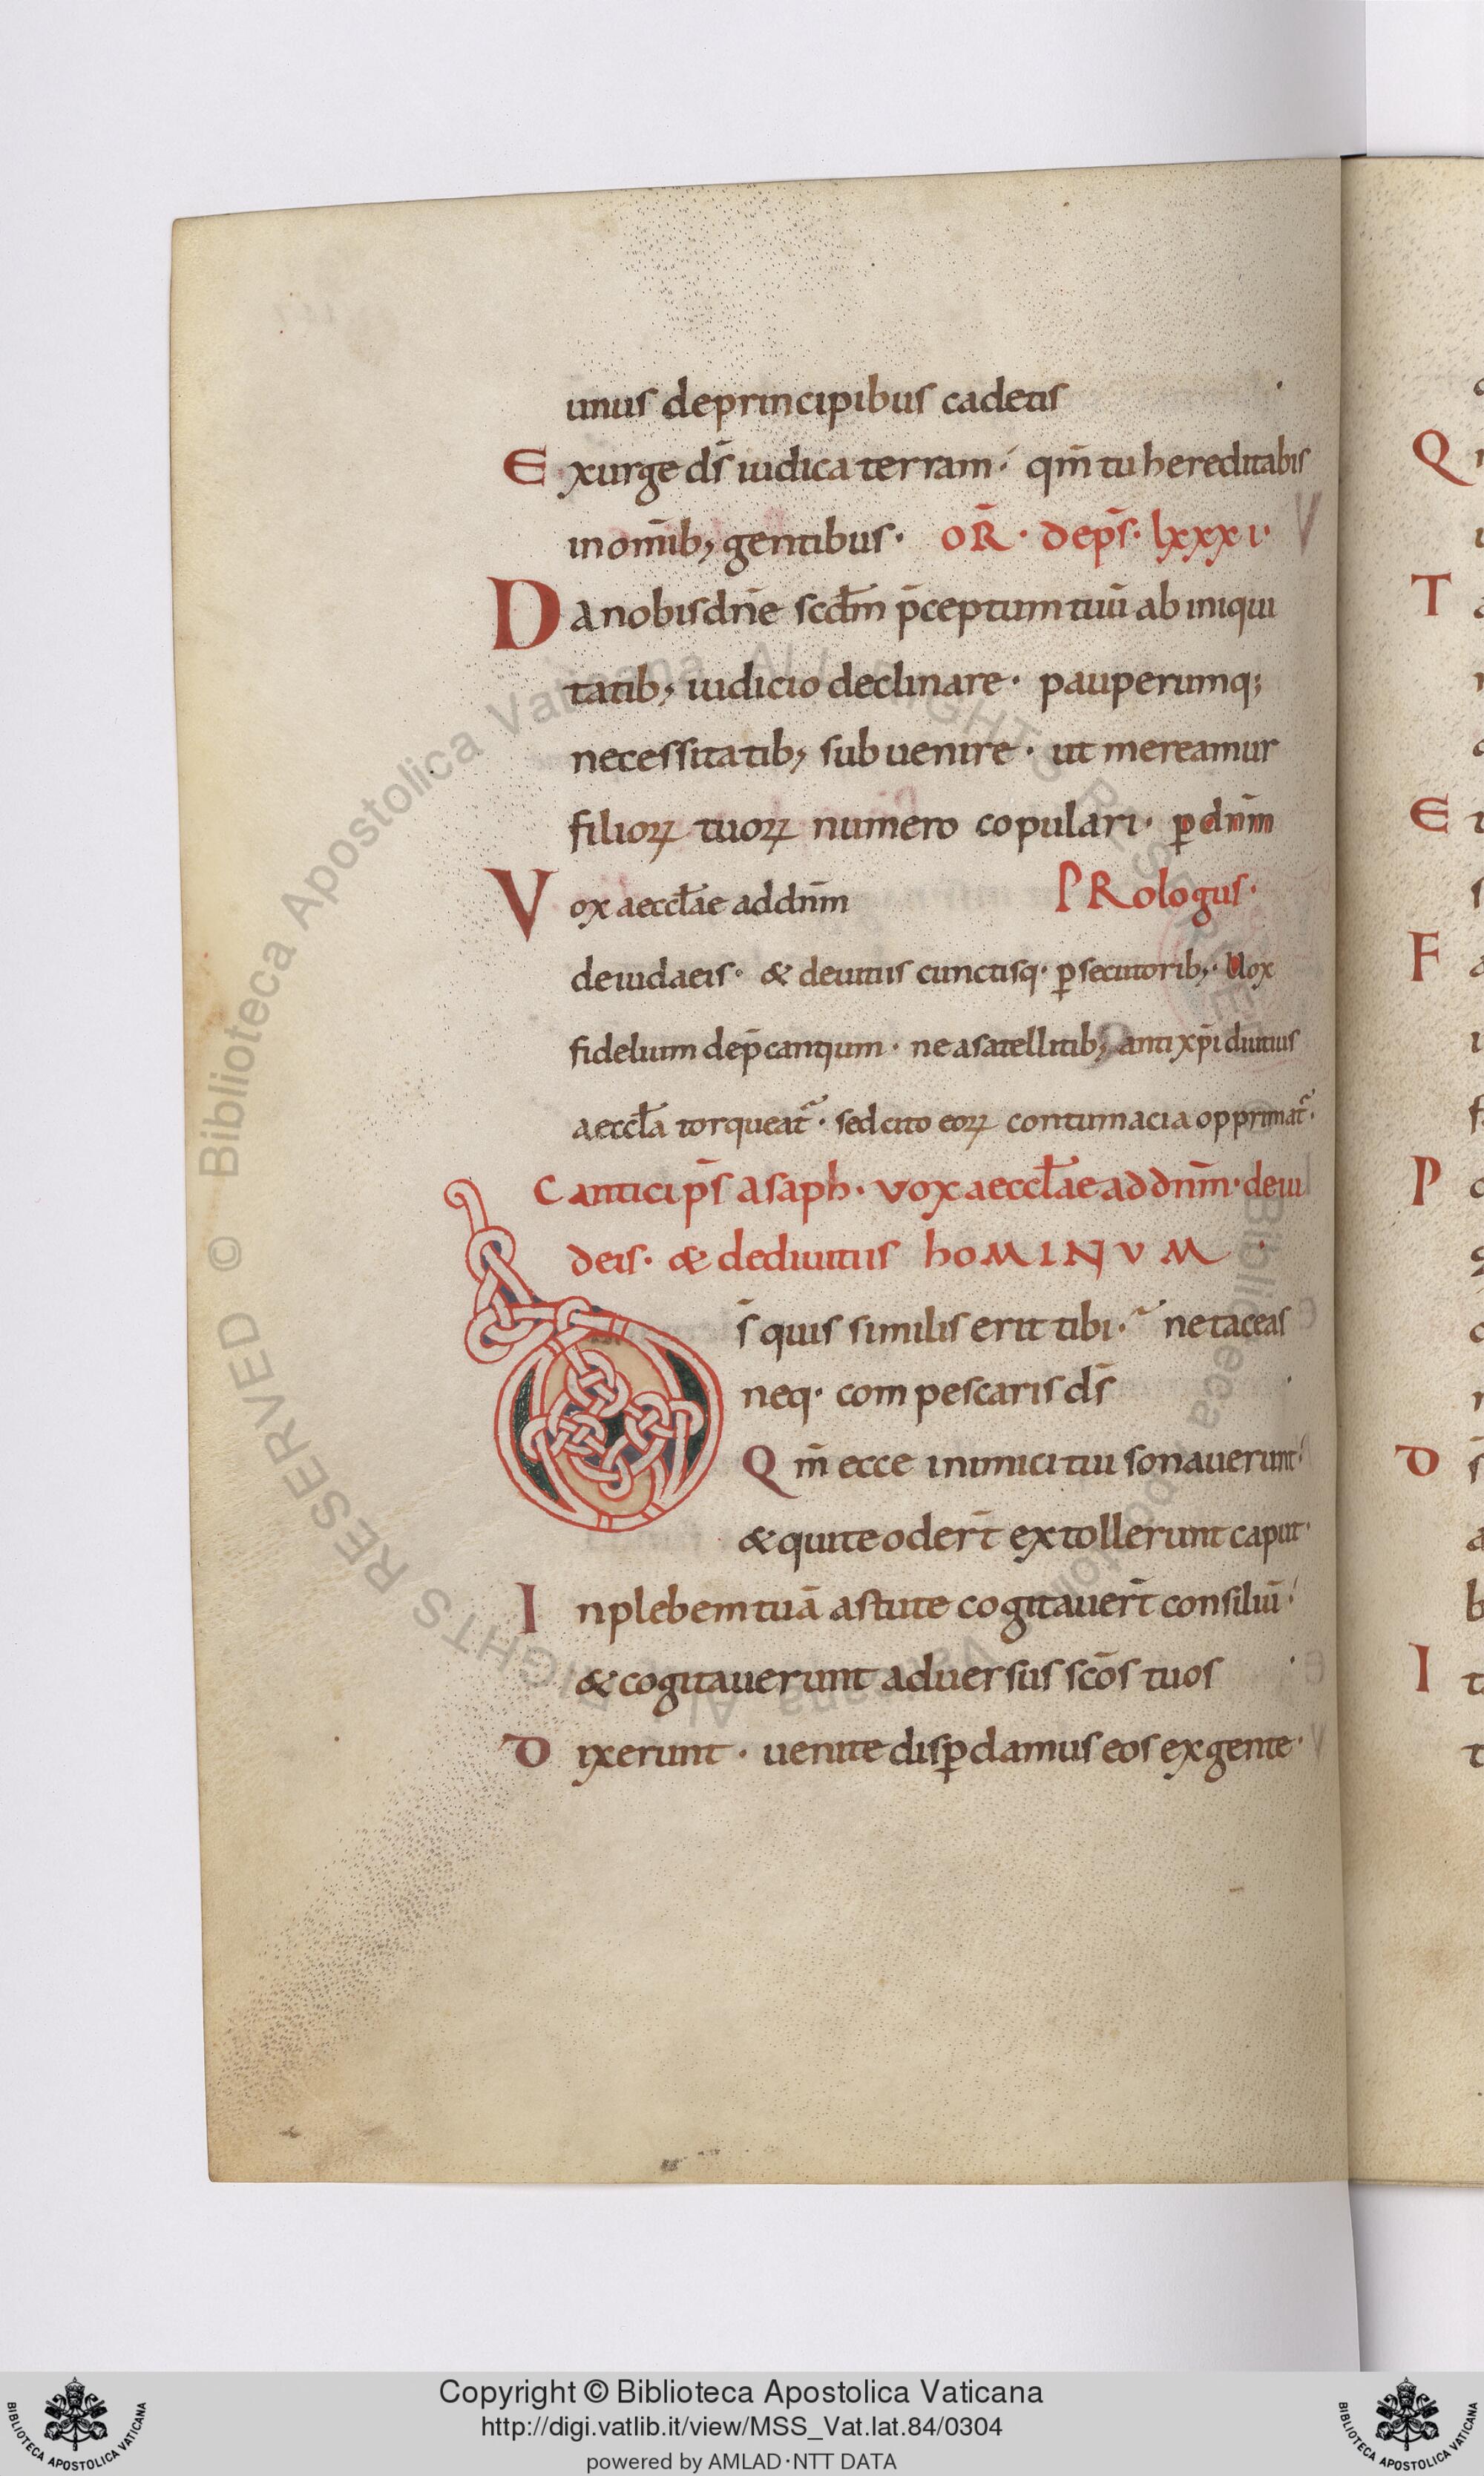 unus de principibus cadetis
Exurge ds̄ iudica terram· qm̄ tu hereditabis
in om̄ib; gentibus· OR̄· de ps̄· lxxxi·
Da nobis dn̄e scd̄m p̄ceptum tuū ab iniqui
tatib; iudicio declinare· pauperumq;
necessitatib; subuenire· ut mereamur
filioꝝ tuoꝝ numero copulari· ꝑ dnm̄
Vox aeccl̄ae ad dnm̄ PRologus·
de iudaeis· & de uitiis cunctisq· ꝑsecutorib;· Uox
fidelium dep̄cantium· ne a satellitib; antixp̄i diutius
aeccl̄a torqueat᷑· sed cito eoꝝ contumacia opprimat᷑·
Cantici ps̄ asaph· vox aeccl̄ae ad dnm̄· de iu
deis· & de diuitiis hoMINVM
Ds̄ quis similis erit tibi· ne taceas
neq· compescaris ds̄
Qm̄ ecce inimici tui sonauerunt·
& qui te oder̄t extollerunt caput·
In plebem tuā astute cogitauer̄t consiliū·
& cogitauerunt aduersus scōs tuos
Dixerunt· uenite disꝑdamus eos ex gente·
Q
T
E
F
P
D
I
© Biblioteca Apostolica Vaticana ALL RIGHTS RESERVED
Copyright © Biblioteca Apostolica Vaticana
http://digi.vatlib.it/view/MSS_Vat.lat.84/0304
powered by AMLAD·NTT DATA
BIBLIOTECA APOSTOLICA VATICANA
BIBLIOTECA APOSTOLICA VATICANA